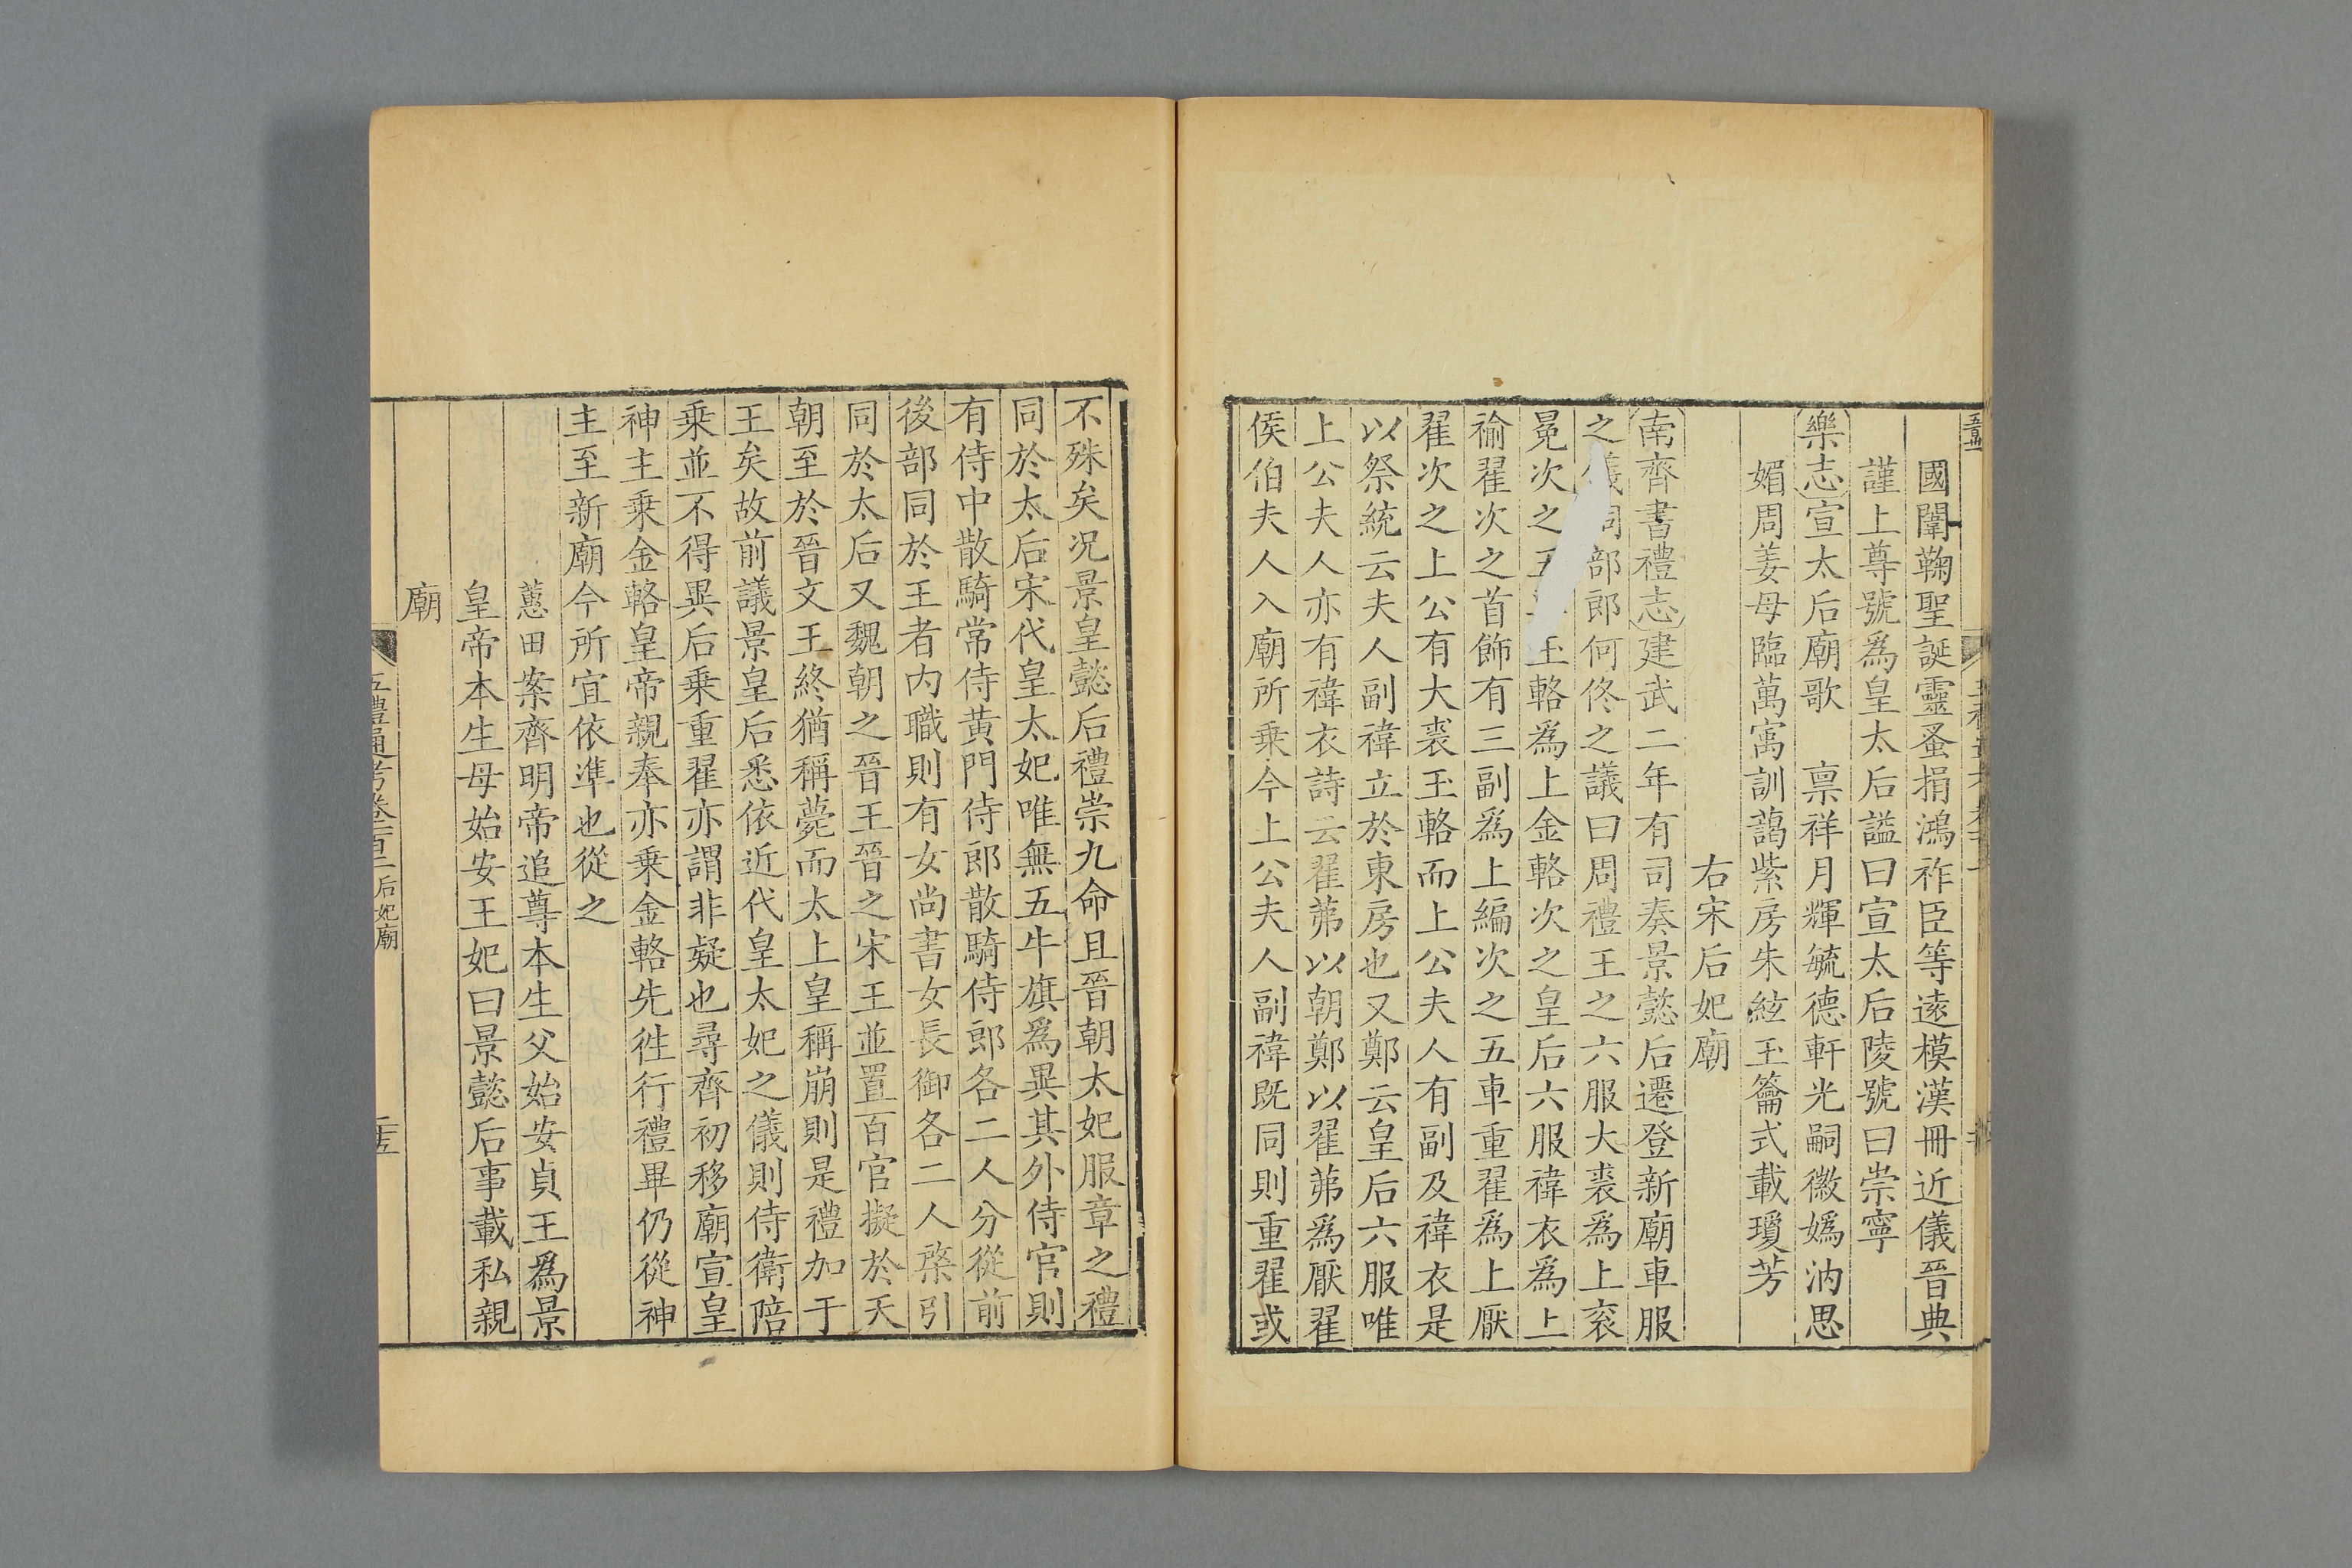 國闈鞠聖誕靈蚤捐鴻祚臣等遠模漢冊近儀晉典
謹上尊號爲皇太后謚曰宣太后陵號曰崇寧
樂志宣太后廟歌　禀祥月輝毓德軒光嗣徽嬀汭思
媚周姜母臨萬㝢訓藹紫房朱絃玉籥式載瓊芳
右宋后妃廟
南齊書禮志建武二年有司奏景懿后遷登新廟車服
之儀祠部郎何佟之議曰周禮王之六服大裘爲上衮
冕次之五 玉輅爲上金輅次之皇后六服褘衣爲上
褕翟次之首飾有三副爲上編次之五車重翟爲上厭
翟次之上公有大裘玉輅而上公夫人有副及褘衣是
以祭統云夫人副褘立於東房也又鄭云皇后六服唯
上公夫人亦有褘衣詩云翟茀以朝鄭以翟茀爲厭翟
侯伯夫人入廟所乗今上公夫人副褘既同則重翟或
不殊矣况景皇懿后禮崇九命且晉朝太妃服章之禮
同於太后宋代皇太妃唯無五牛旗爲異其外侍官則
有侍中散騎常侍黄門侍郎散騎侍郎各二人分從前
後部同於王者内職則有女尚書女長御各二人棨引
同於太后又魏朝之晉王晉之宋王並置百官擬於天
朝至於晉文王終猶稱薨而太上皇稱崩則是禮加于
王矣故前議景皇后悉依近代皇太妃之儀則侍衛陪
乗並不得異后乗重翟亦謂非疑也尋齊初移廟宣皇
神主乗金輅皇帝親奉亦乗金輅先徃行禮畢仍從神
主至新廟今所宜依凖也從之
蕙田案齊明帝追尊本生父始安貞王爲景
皇帝本生母始安王妃曰景懿后事載私親
廟
五禮通考卷一百二 后妃廟
二十五